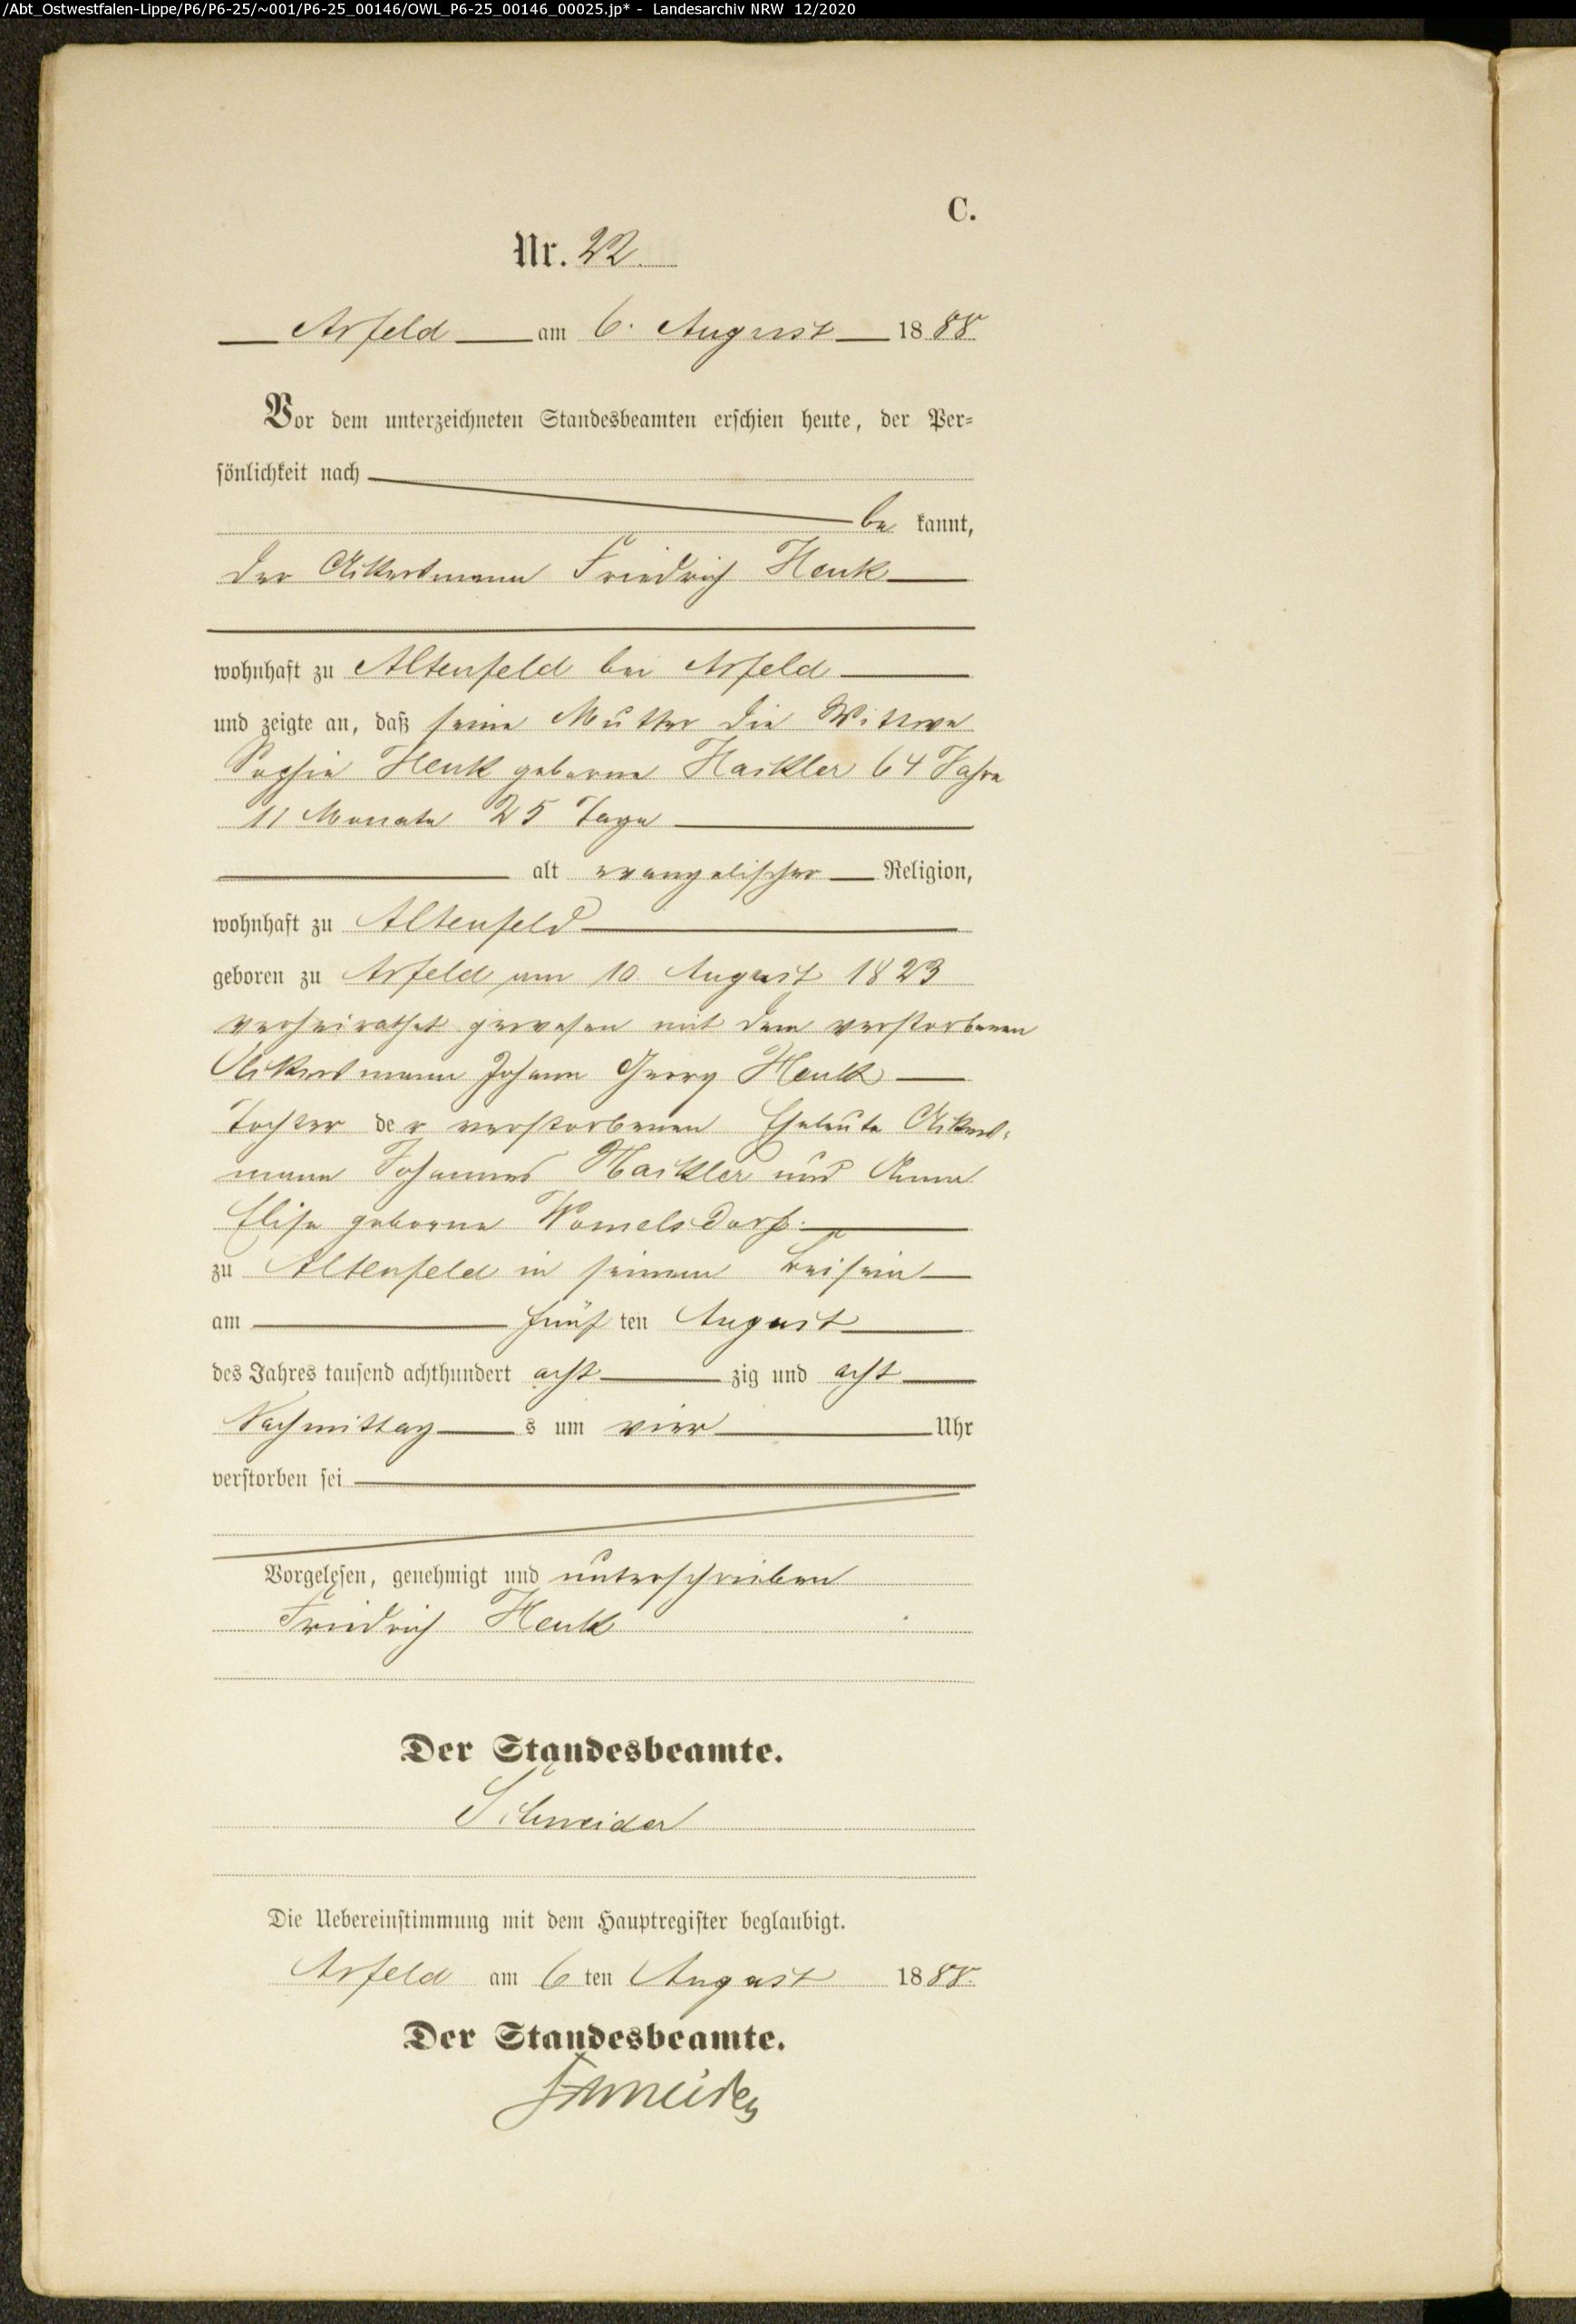 /Abt_Ostwestfalen-Lippe/P6/P6-25/~001/P6-25_00146/OWL_P6-25_00146_00025.jp* - Landesarchiv NRW 12/2020
C.
Nr. 22.
Arfeld am 6. August 1888
Vor dem unterzeichneten Standesbeamten erschien heute, der Per=
sönlichkeit nach
be kannt,
der Ackersmann Friedrich Henk
wohnhaft zu Altenfeld bei Arfeld
und zeigte an, daß seine Mutter die Wittwe
Sophie Henk geborne Hackler 64 Jahre
11 Monate 25 Tage
alt evangelischer Religion,
wohnhaft zu Altenfeld
geboren zu Arfeld am 10 August 1823
verheirathet gewesen mit dem verstorbenen
Ackersmann Johann Georg Henk
Tochter der verstorbenen Eheleute Ackers-
mann Johannes Hackler und Anna
Elise geborne Womelsdorf.
zu Altenfeld in seinem Beisein
am fünf ten August
des Jahres tausend achthundert acht zig und acht
Nachmittag s um vier Uhr
verstorben sei
Vorgelesen, genehmigt und unterschrieben
Friedrich Henk
Der Standesbeamte.
Schneider
Die Uebereinstimmung mit dem Hauptregister beglaubigt.
Arfeld am 6 ten August 1888.
Der Standesbeamte.
Schneider